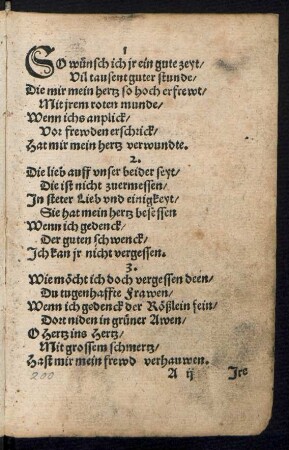 1
SO wünsch ich jr ein gute zeyt/
Vil tausent guter stunde/
Die mir mein hertz so hoch erfrewt/
Mit jrem roten munde/
Wenn ichs anplick/
Vor frewden erschrick/
Hat mir mein hertz verwundte.
2.
Die lieb auff vnser beider seyt/
Die ist nicht zuermessen/
In steter Lieb vnd einigkeyt/
Sie hat mein hertz besessen
Wenn ich gedenck/
Der guten schwenck/
Ich kan jr nicht vergessen.
3.
Wie möcht ich doch vergessen deen/
Du tugenhaffte Frawen/
Wenn ich gedenck der Rößlein fein/
Dort niden in grüner Awen/
O Hertz ins Hertz/
Mit grossem schmertz/
Hast mir mein frewd verhauwen.
200
A ij Jre